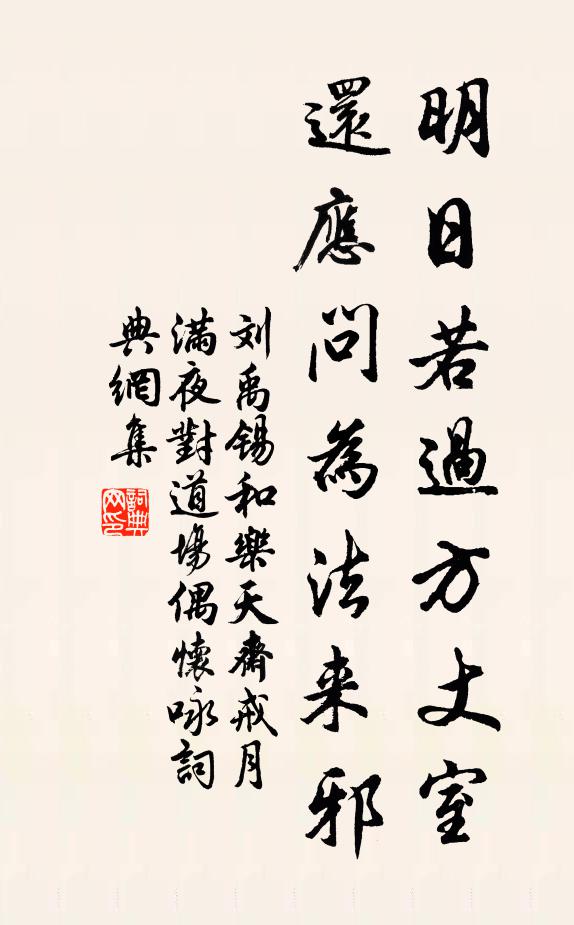 明日若過方丈室
還應問為法来邪
刘禹锡和樂天齋戒月
滿夜對道場偶懷咏詞
典網集
詞典网印